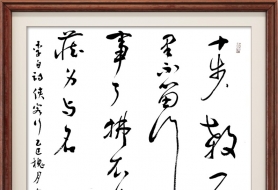 十步殺一
里不留行
事了拂衣
藏身与名
李白詩侠客行乙巳槐月